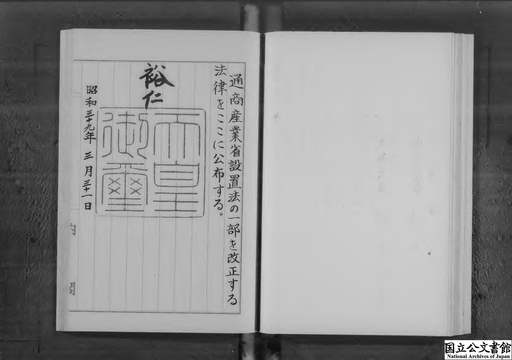 通商産業省設置法の一部を改正する
法律をここに公布する。
裕仁
天皇
御璽
昭和三十九年三月三十一日
国立公文書館
National Archives of Japan